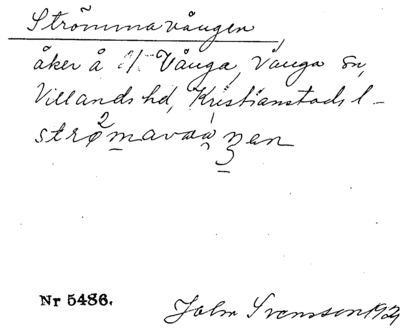 Strömmavången
åker å Vånga, Vånga sn,
Villands hd, Kristianstads l-
Nr 5486.
John Svensson